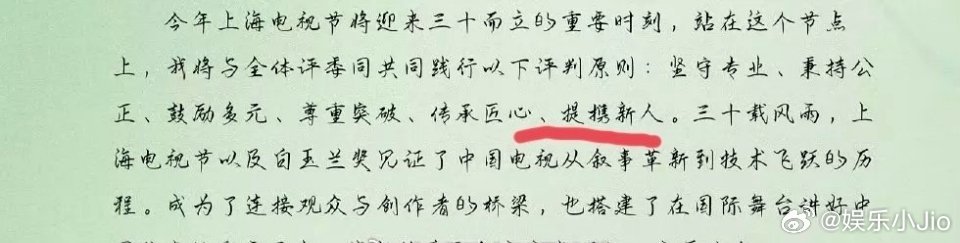 今年上海电视节将迎来三十而立的重要时刻，站在这个节点
上，我将与全体评委同共同践行以下评判原则：坚守专业、秉持公
正、鼓励多元、尊重突破、传承匠心、提携新人。三十载风雨，上
海电视节以及白玉兰奖见证了中国电视从叙事革新到技术飞跃的历
程。成为了连接观众与创作者的桥梁，也搭建了在国际舞台讲好中
@娱乐小Jio